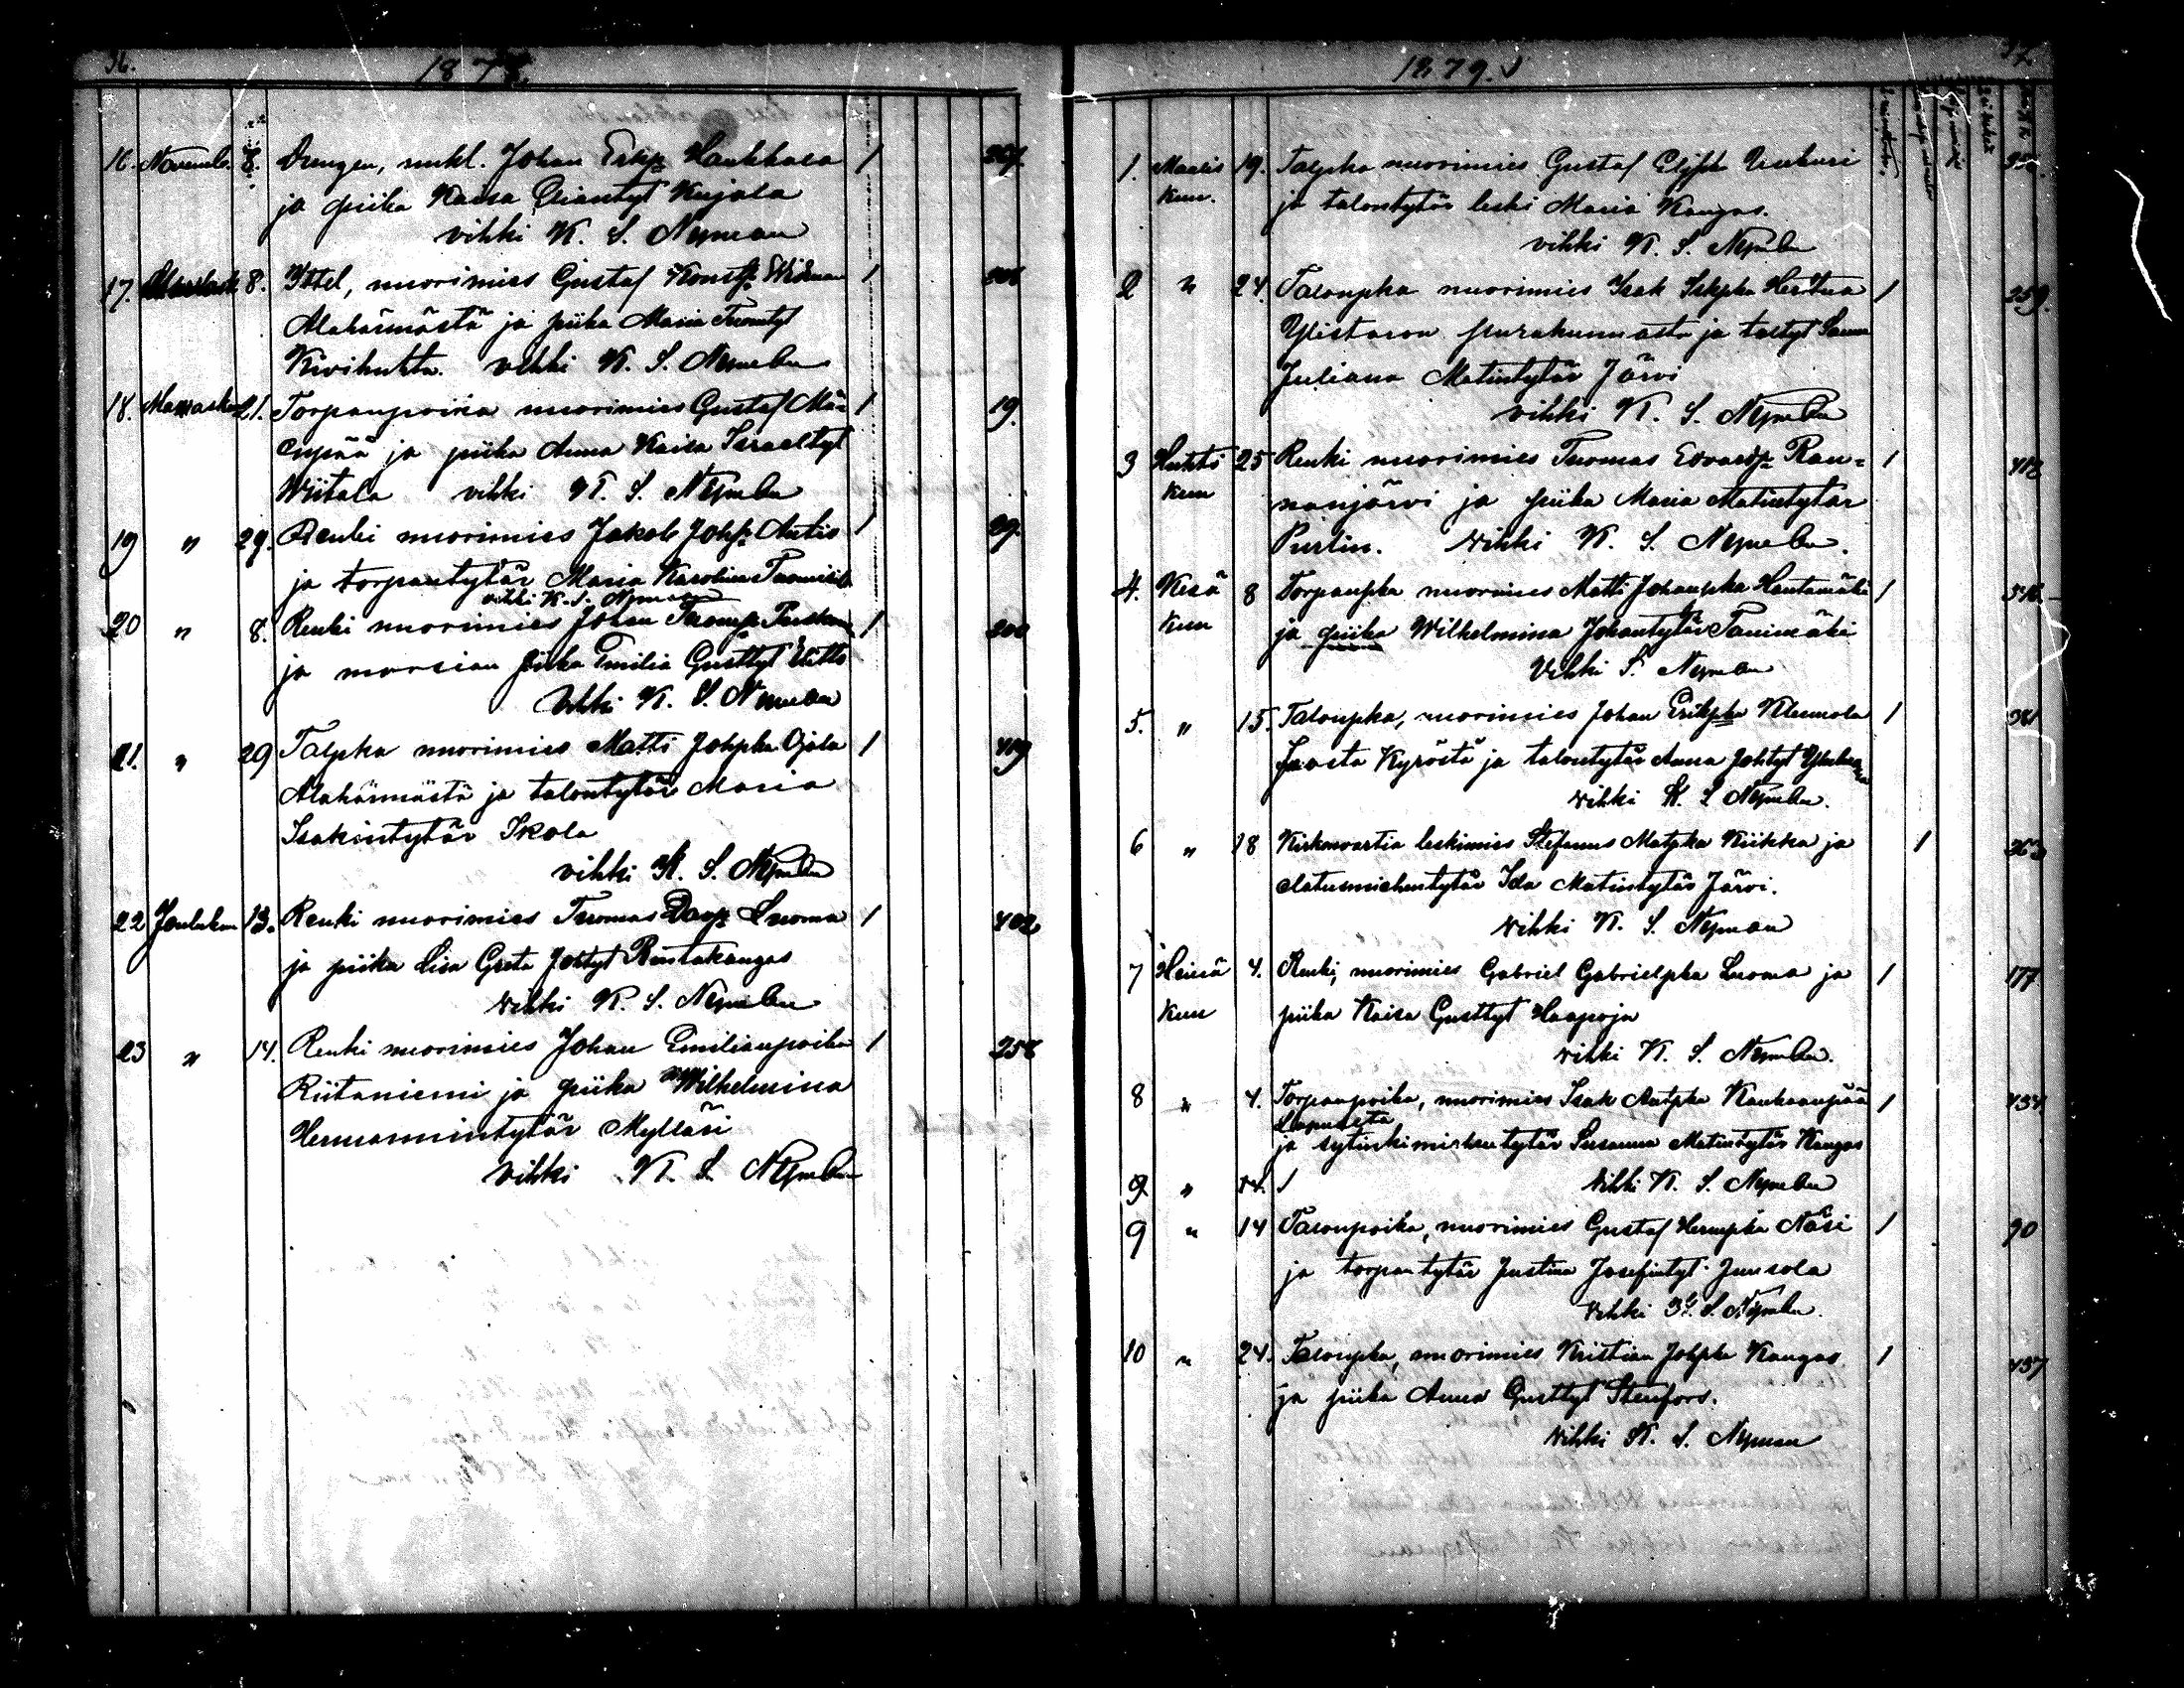 36.
1878.
16. Novemb. 8. Drengen, unkl. Johan Erkp. Haukkala / 267.
ja piika Kaisa Eliantyt Kujala
vihki K. S. Nyman
17. 8. Itsel, nuorimies Gustaf Konstp. Widman /
Alahärmästä ja piika Maria Tuomtyt
Kivihuhta. vihki K. S. Nyman
18. Marrask. 21. Torpanpoika nuorimies Gustaf Mä- / 19.
enpää ja piika Anna Kaisa Israeltyt
Wiitala vihki K. S. Nyman
19 " 29. Renki nuorimies Jakob Johp. Antis / 29.
ja torpantytär Maria Karolina
vihki K. S. Nyman
20 " 8. Renki nuorimies Johan Tuomp. / 200
ja morsian piika Emilia Gusttyt
Vihki K. S. Nyman
21. " 29 Talpka nuorimies Matti Johpka Ojala / 419
Alahärmästä ja talontytär Maria
Isakintytär Ikola
vihki K. S. Nyman
22 Jouluku 13. Renki nuorimies Tuomas Davp. Luoma / 402
ja piika Lisa Greta Johtyt Rintakangas
vihki K. S. Nyman
23 " 14. Renki nuorimies Johan Emilianpoika / 258
Riitaniemi ja piika Wilhelmina
Hermannintytär Mylläri
vihki K. S. Nyman
37
1879.
1. Maalis 19. Talpka nuorimies Gustaf
kun. ja talontytär leski Maria Kangas.
vihki K. S. Nyman
2 " 24. Talonpka nuorimies Isak Iskpka Herttua / 259.
Ylistaron ja taltyt Sanna
Juliana Matintytär Järvi
vihki K. S. Nyman
3 Huhti 25 Renki nuorimies Tuomas Edvardp. Ran- / 418
kun nanjärvi ja piika Maria Matintytär
Purtin. vihki K. S. Nyman.
4. Kesä 8 Torpanpka nuorimies Matti Johanpka Hautamäki /
kun ja piika Wilhelmina Johantytär Tanimäki
Vihki S. Nyman
5. " 15. Talonpka, nuorimies Johan Erikpka Klemola / 381
Isosta Kyröstä ja talontytär Anna Johtyt
vihki K. S. Nyman.
6 " 18 Kirkonvartia leskimies Stefanus Matpka Kiikka ja /
elatusmiehentytär Ida Matintytär Järvi.
vihki K. S. Nyman
7 Heinä 4. Renki, nuorimies Gabriel Gabrielpka Luoma ja / 177
kun piika Kaisa Gusttyt Haapoja
vihki K. S. Nyman.
8 " 4. Torpanpoika, nuorimies Isak Antpka Kankaanpää / 434
Lapualta
ja sytinkimiehentytär Susanna Matintytär Kangas
vihki K. S. Nyman
9 " 14. /
9 " 14 Talonpoika, nuorimies Gustaf Hermpka Näsi / 90
ja torpantytär Justina Josefintyt Juusola
vihki K. S. Nyman.
10 " 24. Talonpka, nuorimies Kristian Johpka Kangas / 437
ja piika Anna Gusttyt Stenfors.
vihki K. S. Nyman